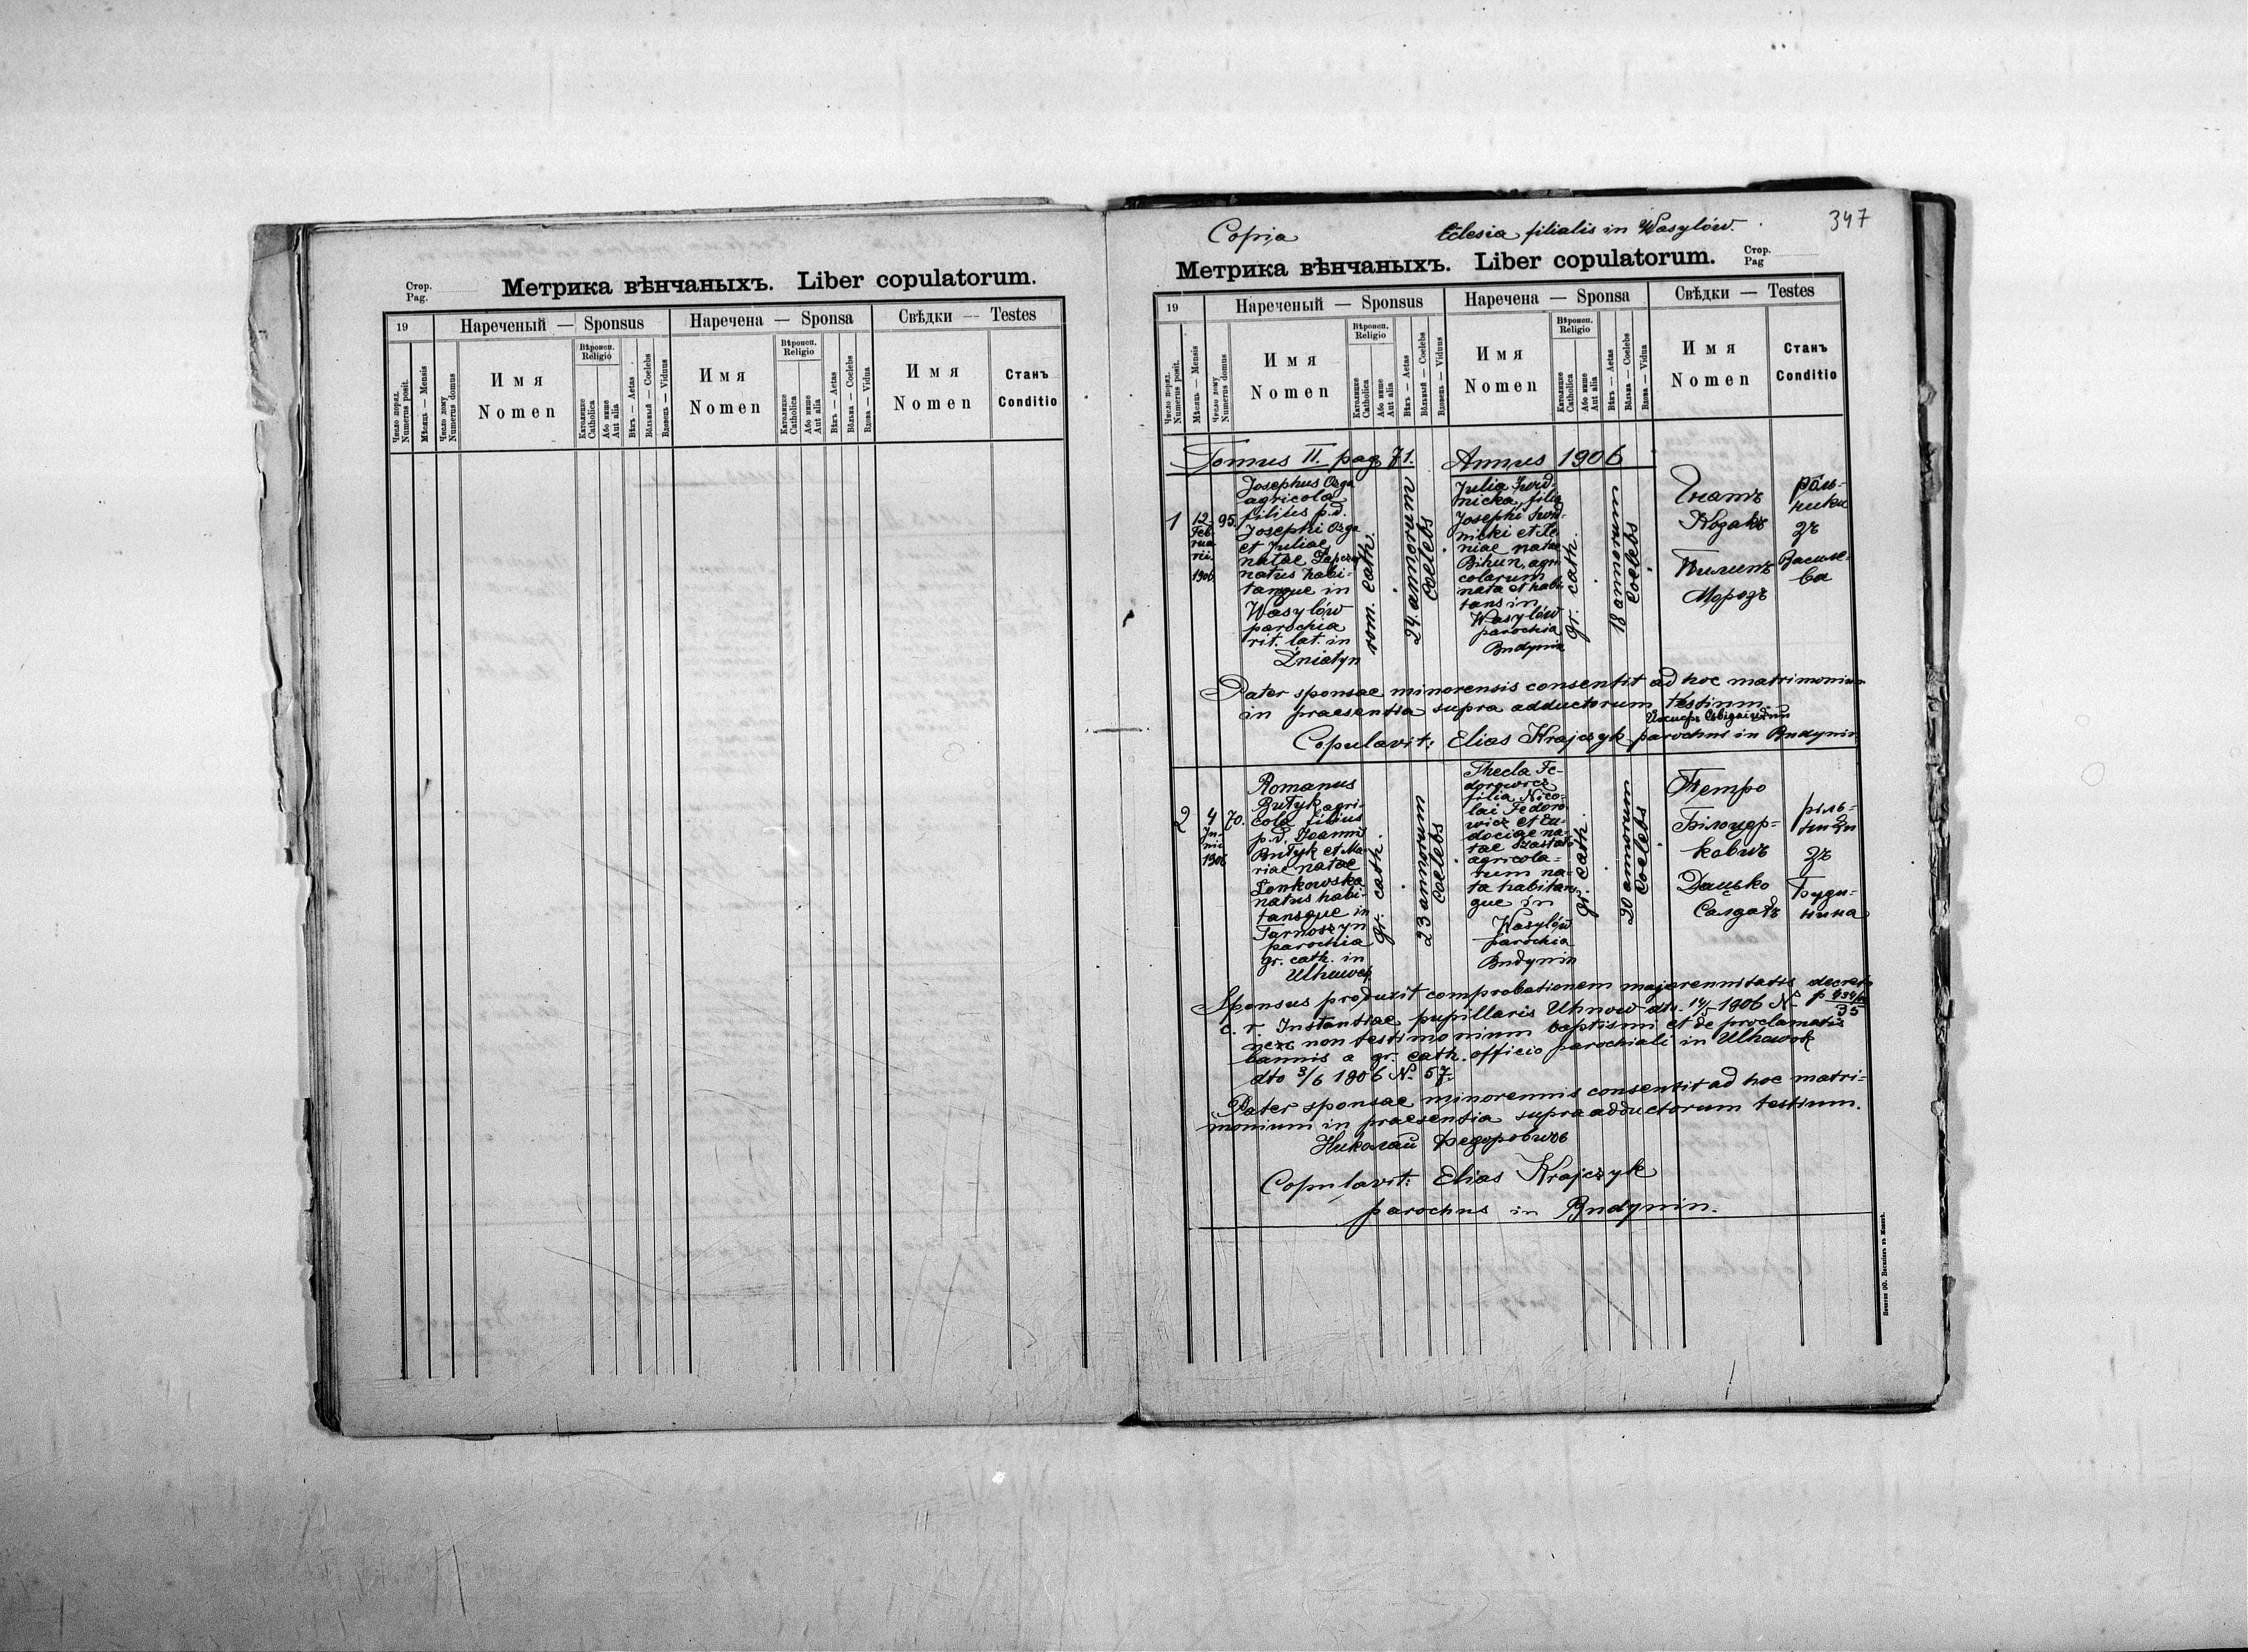 Стор.
Pag.
Метрика вѣнчаныхъ. Liber copulatorum.
19
Нареченый — Sponsus
Наречена — Sponsa
Свѣдки — Testes
Число поряд.
Numerus posit.
Мѣсяць — Mensis
Число дому
Numerus domus
Имя
Nomen
Вѣроисп.
Religio
Католицке
Catholica
Або инше
Aut alia
Вѣкъ — Aetas
Вѣльный — Coelebs
Вдовець — Viduus
Имя
Nomen
Вѣроисп.
Religio
Католицке
Catholica
Або инше
Aut alia
Вѣкъ — Aetas
Вѣльна — Coelebs
Вдова — Vidua
Имя
Nomen
Станъ
Conditio
Copia
Eclesia filialis in Wasylów.
347
Метрика вѣнчаныхъ. Liber copulatorum.
Стор.
Pag
19
Нареченый — Sponsus
Наречена — Sponsa
Свѣдки — Testes
Число поряд.
Numerus posit.
Мѣсяць — Mensis
Число дому
Numerus domus
Имя
Nomen
Вѣроисп.
Religio
Католицке
Catholica
Або инше
Aut alia
Вѣкъ — Aetas
Вѣльный — Coelebs
Вдовець — Viduus
Имя
Nomen
Вѣроисп.
Religio
Католицке
Catholica
Або инше
Aut alia
Вѣкъ — Aetas
Вѣльна — Coelebs
Вдова — Vidua
Имя
Nomen
Станъ
Conditio
Tomus II. pag 71. Annus 1906
1
12
Feb-
rua-
rii
1906
95.
Josephus Ozga
agricola
filius p.d.
Josephi Ozga
et Juliae
natae
natus habi-
tanque in
Wasylów
parochia
rit. lat. in
Żniatyn
rom. cath.
24. annorum
Coelebs
Julia
nicka, filia
Josephi
nicki et Xe-
niae natae
Bihun, agri
colarum
nata et habi
tans in
Wasylów
parochia
Budynin
gr. cath.
18 annorum
Coelebs
Гнатъ
Козакъ
Пилипъ
Морозъ
рôль-
ники
зъ
Василе-
ва
Pater sponsae minorensis consentit ad hoc matrimonium
in praesentia supra adductorum testium.
Copulavit: Elias Krajczyk parochus in Budynin
2
4
Ju-
nii
1906
70.
Romanus
Butyk agri-
cola filius
p.d. Joannis
Butyk et Ma-
riae natae
Lenkowska
natus habi-
tansque in
Tarnoszyn
parochia
gr. cath. in
Ulhuwek
gr. cath.
23 annorum
Coelebs
Thecla Fe-
dorowicz
filia Nico-
lai Fedoro
wicz et Eu-
dociae na-
tae
agricola-
rum na-
ta habitans
que in
Wasylów
parochia
Budynin
gr. cath.
20 annorum
Coelebs
Петро
Білоцер-
ковъ
Дацько
Салдатъ
зъ
Буди-
нина
Sponsus produxit comprobationem majorennitatis decreto
c. r. Instantiae pupillaris Uhnow dto. 14/5 1906 No
nec non testimonium baptismi et de proclamatis
bannis a gr. cath. officio parochiali in Ulhuwek
dto 3/6 1906 No 57.
Pater sponsae minorennis consentit ad hoc matri-
monium in praesentia supra adductorum testium.
Николай Федоровичъ
Copulavit: Elias Krajczyk
parochus in Budynin.